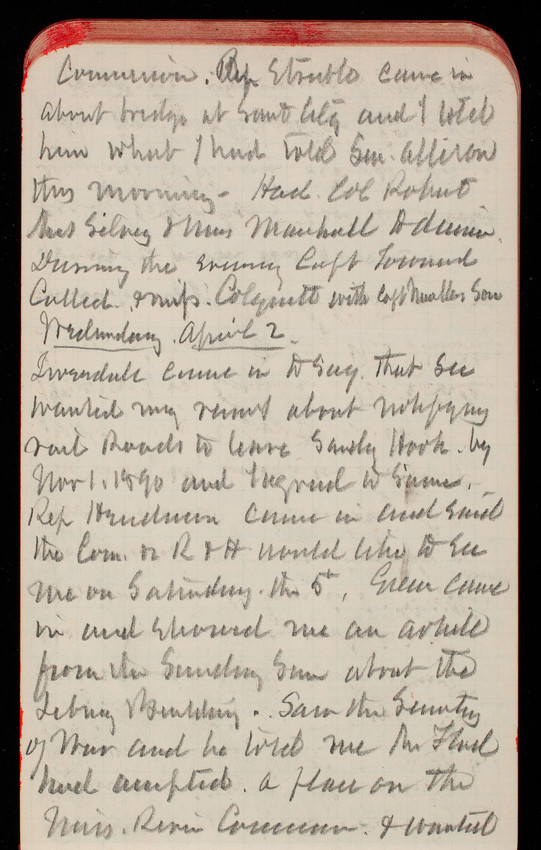 Commission. Rep Struble came in
about bridge at Sioux City and I told
him what I had told Sen. Allison
this morning - Had Col Robert
Miss Silvey & Miss Marshall to dinner.
During the evening Capt
Called & Mrs. Colquitt with Capt Son
Wednesday April 2
came in to say that Sec
wanted my about notifying
rail Roads to leave Sandy Hook. by
Nov 1. 1890 and I agreed to same.
Rep Henderson came in and said
the Com. on R & H would like to see
me on Saturday. the 5th, Green came
in and showed me an article
from the Sunday Sun about the
Library Building. Saw the Secretary
of War and he told me Mr Flad
had accepted. a place on the
Miss. River Commission. & wanted